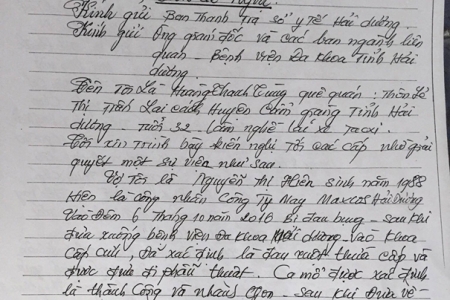 Kính gửi Ban Thanh Tra sở y Tế Hải dương.
Kính gửi ông giám đốc và các ban ngành liên
quan - Bệnh viện Đa Khoa Tỉnh Hải
dương.
Tên Tôi Là Hoàng Thanh Tùng quê quán : Thôn
Thị Trấn Lai cách Huyện Cẩm giàng Tỉnh Hải
dương - Tuổi 32 - Làm nghề lái xe Taxi.
Tôi xin Trình bày kiến nghị Tới các cấp nhờ giải
quyết một sự việc như sau.
Vợ Tôi là Nguyễn Thị Hiền sinh năm 1988
Hiện là công nhân Công Ty May Maxcos Hải Dương
Vào Đêm 6 Tháng 10 năm 2016 Bị đau bụng - sau khi
đưa xuống bệnh viện Đa Khoa Hải dương - Vào Khoa
Cấp cứu, Đã xác định là đau ruột thừa cấp và
được đưa đi phẫu thuật. Ca mổ được xác định
là thành Công và nhanh gọn - sau khi đưa về -